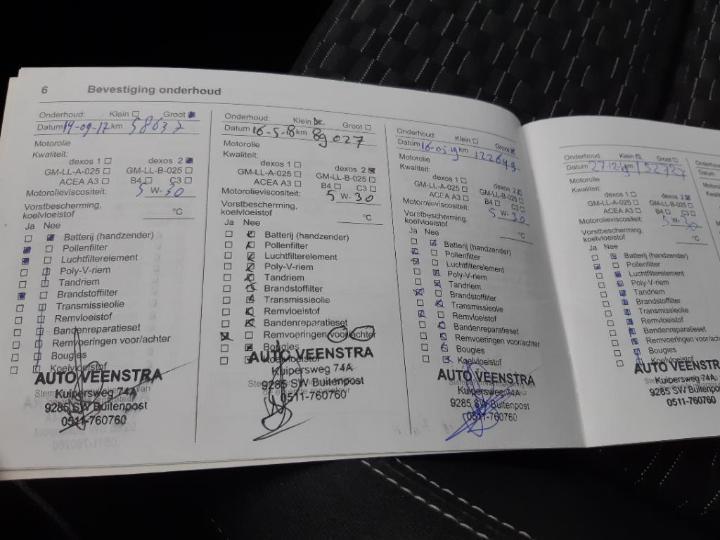 6 Bevestiging onderhoud
Onderhoud: Klein Groot
Datum 19-09-17 km 58637
Motorolie
Kwaliteit:
dexos 1 dexos 2
GM-LL-A-025 GM-LL-B-025
ACEA A3 B4 C3
Motorolieviscositeit: 5 W- 30
Vorstbescherming,
koelvloeistof °C
Ja Nee
Batterij (handzender)
Pollenfilter
Luchtfilterelement
Poly-V-riem
Tandriem
Brandstoffilter
Transmissieolie
Remvloeistof
Bandenreparatieset
Remvoeringen voor/achter
Bougies
Koelvloeistof
AUTO VEENSTRA
Kuipersweg 74A
9285 SW Buitenpost
0511-760760
Onderhoud: Klein Groot
Datum 16-5-18 km 89027
Motorolie
Kwaliteit:
dexos 1 dexos 2
GM-LL-A-025 GM-LL-B-025
ACEA A3 B4 C3
Motorolieviscositeit: 5 W- 30
Vorstbescherming,
koelvloeistof °C
Ja Nee
Batterij (handzender)
Pollenfilter
Luchtfilterelement
Poly-V-riem
Tandriem
Brandstoffilter
Transmissieolie
Remvloeistof
Bandenreparatieset
Remvoeringen voor/achter
Bougies
Koelvloeistof
AUTO VEENSTRA
Kuipersweg 74A
9285 SW Buitenpost
0511-760760
Onderhoud: Klein Groot
Datum 16-05-19 km 122649
Motorolie
Kwaliteit:
dexos 1 dexos 2
GM-LL-A-025 GM-LL-B-025
ACEA A3 B4 C3
Motorolieviscositeit: 5 W- 30
Vorstbescherming,
koelvloeistof °C
Ja Nee
Batterij (handzender)
Pollenfilter
Luchtfilterelement
Poly-V-riem
Tandriem
Brandstoffilter
Transmissieolie
Remvloeistof
Bandenreparatieset
Remvoeringen voor/achter
Bougies
Koelvloeistof
AUTO VEENSTRA
Kuipersweg 74A
9285 SW Buitenpost
0511-760760
Onderhoud: Klein Groot
Datum km
Motorolie
Kwaliteit:
dexos 1 dexos 2
GM-LL-A-025 GM-LL-B-025
ACEA A3 B4 C3
Motorolieviscositeit: 5 W-
Vorstbescherming,
koelvloeistof °C
Ja Nee
Batterij (handzender)
Pollenfilter
Luchtfilterelement
Poly-V-riem
Tandriem
Brandstoffilter
Transmissieolie
Remvloeistof
Bandenreparatieset
Remvoeringen voor/achter
Bougies
Koelvloeistof
AUTO VEENSTRA
Kuipersweg 74A
9285 SW Buitenpost
0511-760760